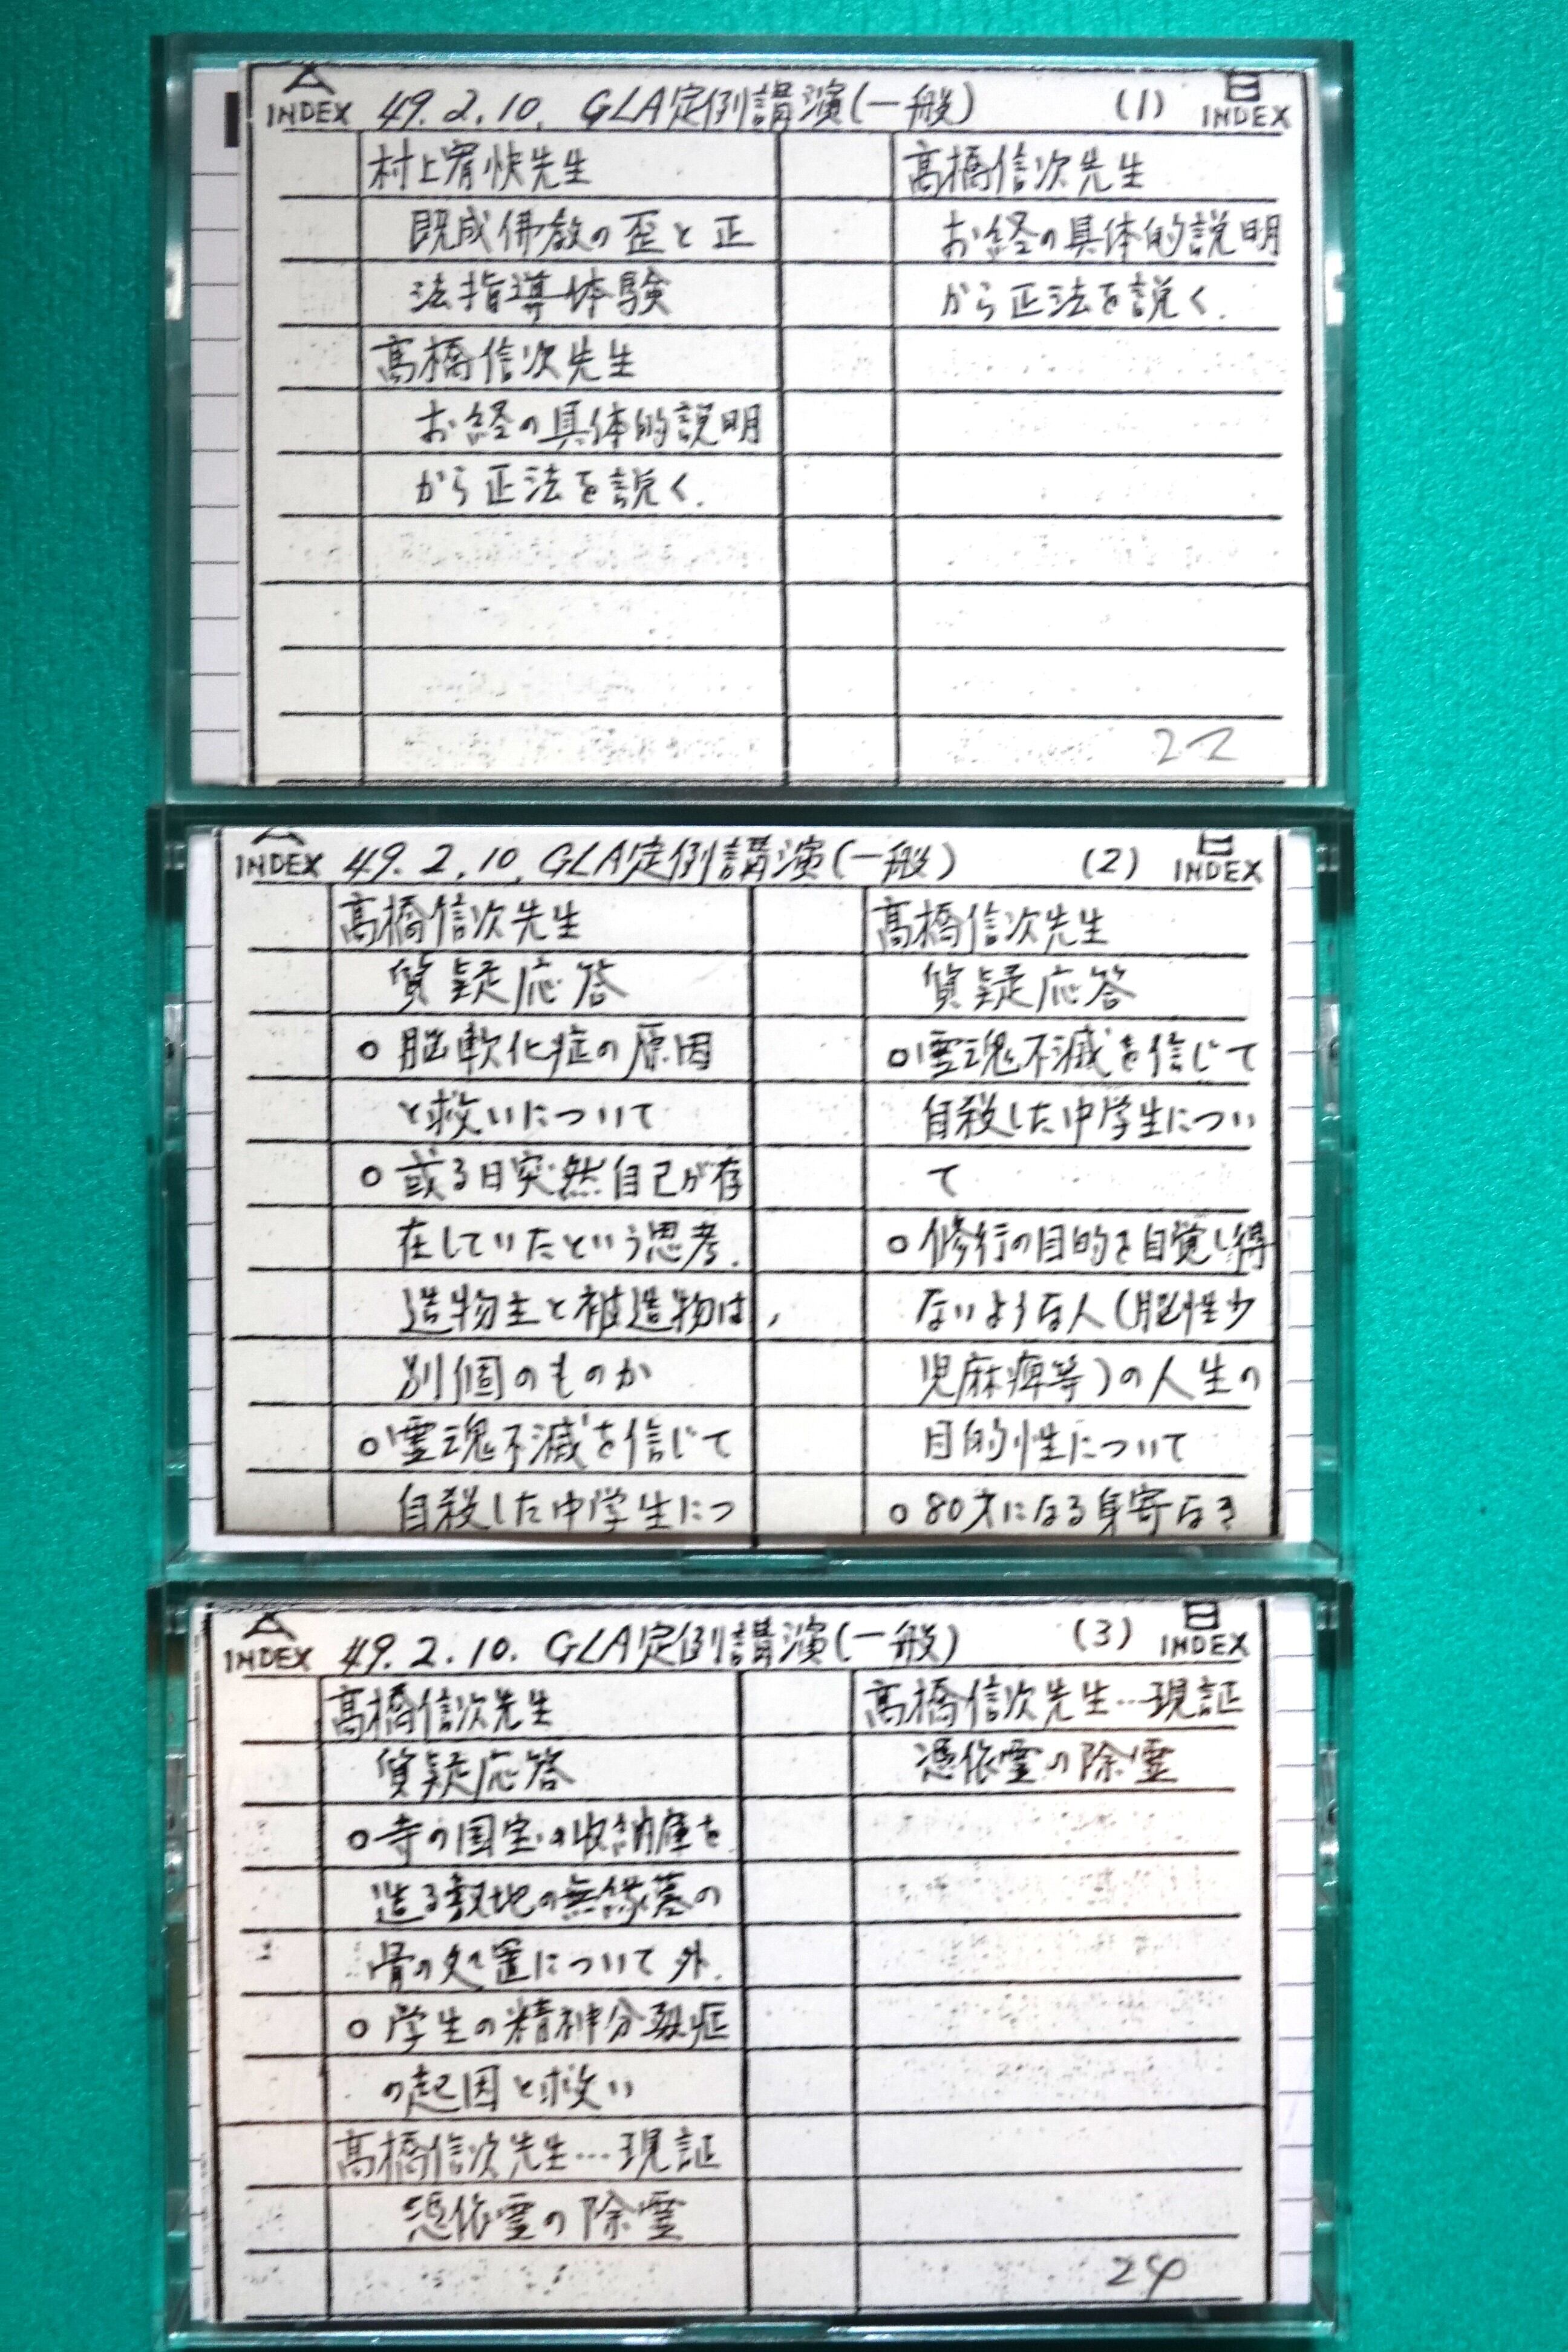 A INDEX 49.2.10. GLA定例講演(一般) (1) B INDEX
村上宥快先生
既成佛教の歪と正
法指導体験
高橋信次先生
お経の具体的説明
から正法を説く.
高橋信次先生
お経の具体的説明
から正法を説く.
22
A INDEX 49.2.10. GLA定例講演(一般) (2) B INDEX
高橋信次先生
質疑応答
○脳軟化症の原因
と救いについて
○或る日突然自己が存
在していたという思考.
造物主と被造物は,
別個のものか
○霊魂不滅を信じて
自殺した中学生につ
高橋信次先生
質疑応答
○霊魂不滅を信じて
自殺した中学生につい
て
○修行の目的を自覚し得
ないような人(脳性少
児麻痺等)の人生の
目的性について
○80才になる身寄なき
A INDEX 49.2.10. GLA定例講演(一般) (3) B INDEX
高橋信次先生
質疑応答
○寺の国宝の収納庫を
造る敷地の無縁墓の
骨の処置について外.
○学生の精神分裂症
の起因と救い
高橋信次先生…現証
憑依霊の除霊
高橋信次先生…現証
憑依霊の除霊
24